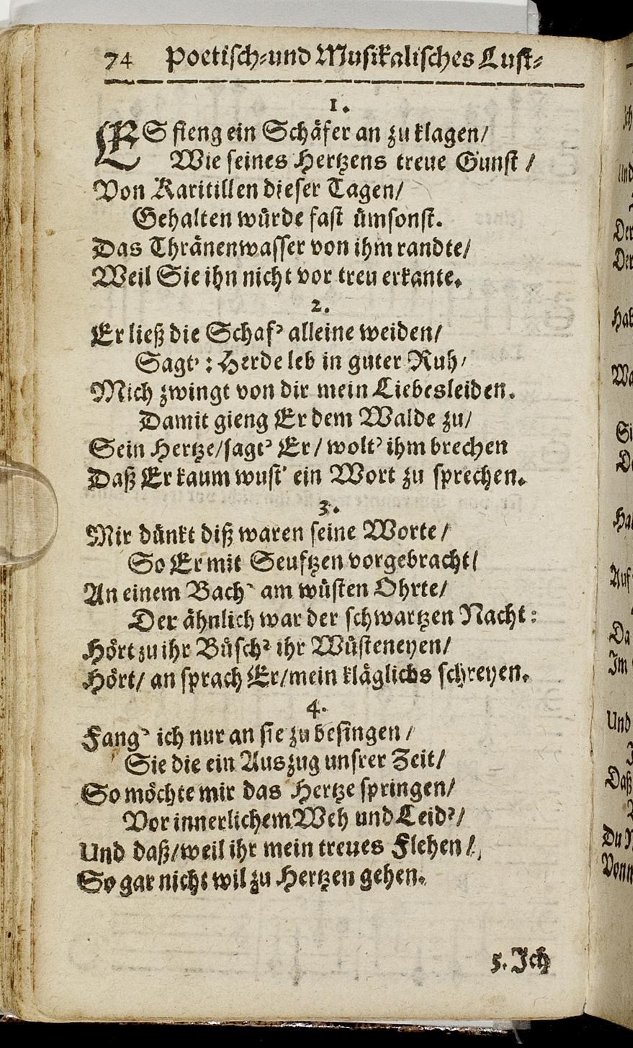 74 Poetisch-und Musikalisches Lust-
1.
ES fieng ein Schäfer an zu klagen/
Wie seines Hertzens treue Gunst /
Von Karitillen dieser Tagen/
Gehalten würde fast ümsonst.
Das Thränenwasser von ihm randte/
Weil Sie ihn nicht vor treu erkante.
2.
Er ließ die Schaf' alleine weiden/
Sagt' : Herde leb in guter Ruh/
Mich zwingt von dir mein Liebesleiden.
Damit gieng Er dem Walde zu/
Sein Hertze/sagt' Er/ wolt' ihm brechen
Daß Er kaum wust' ein Wort zu sprechen.
3.
Mir dünkt diß waren seine Worte/
So Er mit Seuftzen vorgebracht/
An einem Bach' am wüsten Ohrte/
Der ähnlich war der schwartzen Nacht:
Hört zu ihr Büsch' ihr Wüsteneyen/
Hört/ an sprach Er/mein kläglichs schreyen.
4.
Fang' ich nur an sie zu besingen /
Sie die ein Auszug unsrer Zeit/
So möchte mir das Hertze springen/
Vor innerlichem Weh und Leid'/
Und daß/weil ihr mein treues Flehen/
So gar nicht wil zu Hertzen gehen.
5. Ich